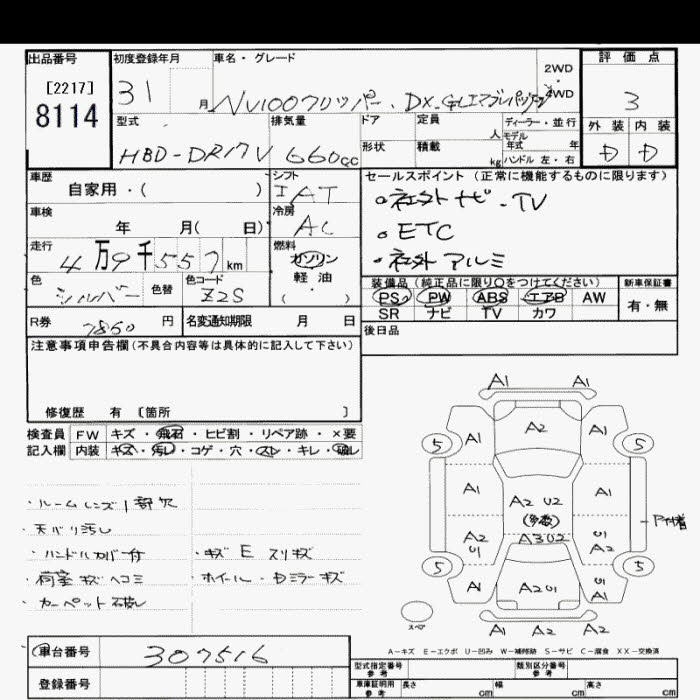 出品番号
[2217]
8114
初度登録年月
31 月
車名・グレード
NV100クリッパー . DX.GLエマブレパッケ
2WD
・
4WD
評価点
3
外装 内装
D D
型式
HBD-DR17V
排気量
660cc
ドア
定員
人
ディーラー・並行
モデル
年式 年
形状
積載
kg
ハンドル 左・右
車歴
自家用・( )
シフト
IAT
車検
年 月( 日)
冷房
AC
走行
4万9千557km
燃料
ガソリン
軽・油
( )
色
シルバー
色替
色コード
Z2S
R券
7860 円
名変通知期限 月 日
セールスポイント(正常に機能するものに限ります)
○社外ナビ・TV
○ETC
○社外アルミ
装備品(純正品に限り○をつけてください)
PS PW ABS エアB AW
SR ナビ TV カワ
新車保証書
有・無
後日品
注意事項申告欄(不具合内容等は具体的に記入して下さい)
修復歴 有 〔箇所 〕
検査員 FW キズ・飛石・ヒビ割・リペア跡・×要
記入欄 内装 キズ・汚れ・コゲ・穴・スレ・キレ・破レ
・ルームレンズ1部欠
・天バリ汚レ
・ハンドルカバー付
・荷室キズヘコミ
・カーペット破レ
・キズ E スリキズ
・ホイール・Dミラーキズ
A1 A1
A1 A2 A1
5 5
A1 A2 U2 A1
(多数)
A2 U1 A3U2 U1 A2
5 5
A1 A2U1 U1 A1
A1 A2 A2
スペア
A-キズ E-エクボ U-凹み W-補修跡 S-サビ C-腐食 XX-交換済
車台番号 307516
登録番号
型式指定番号
参考
類別区分番号
参考
車庫証明用
参考
長さ cm 幅 cm 高さ cm